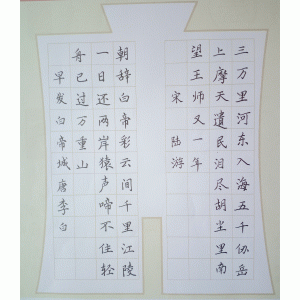 三万里河东入海五千仞岳
上摩天遗民泪尽胡尘里南
望王师又一年
宋 陆游
朝辞白帝彩云间千里江陵
一日还两岸猿声啼不住轻
舟已过万重山
早发白帝城 唐李白